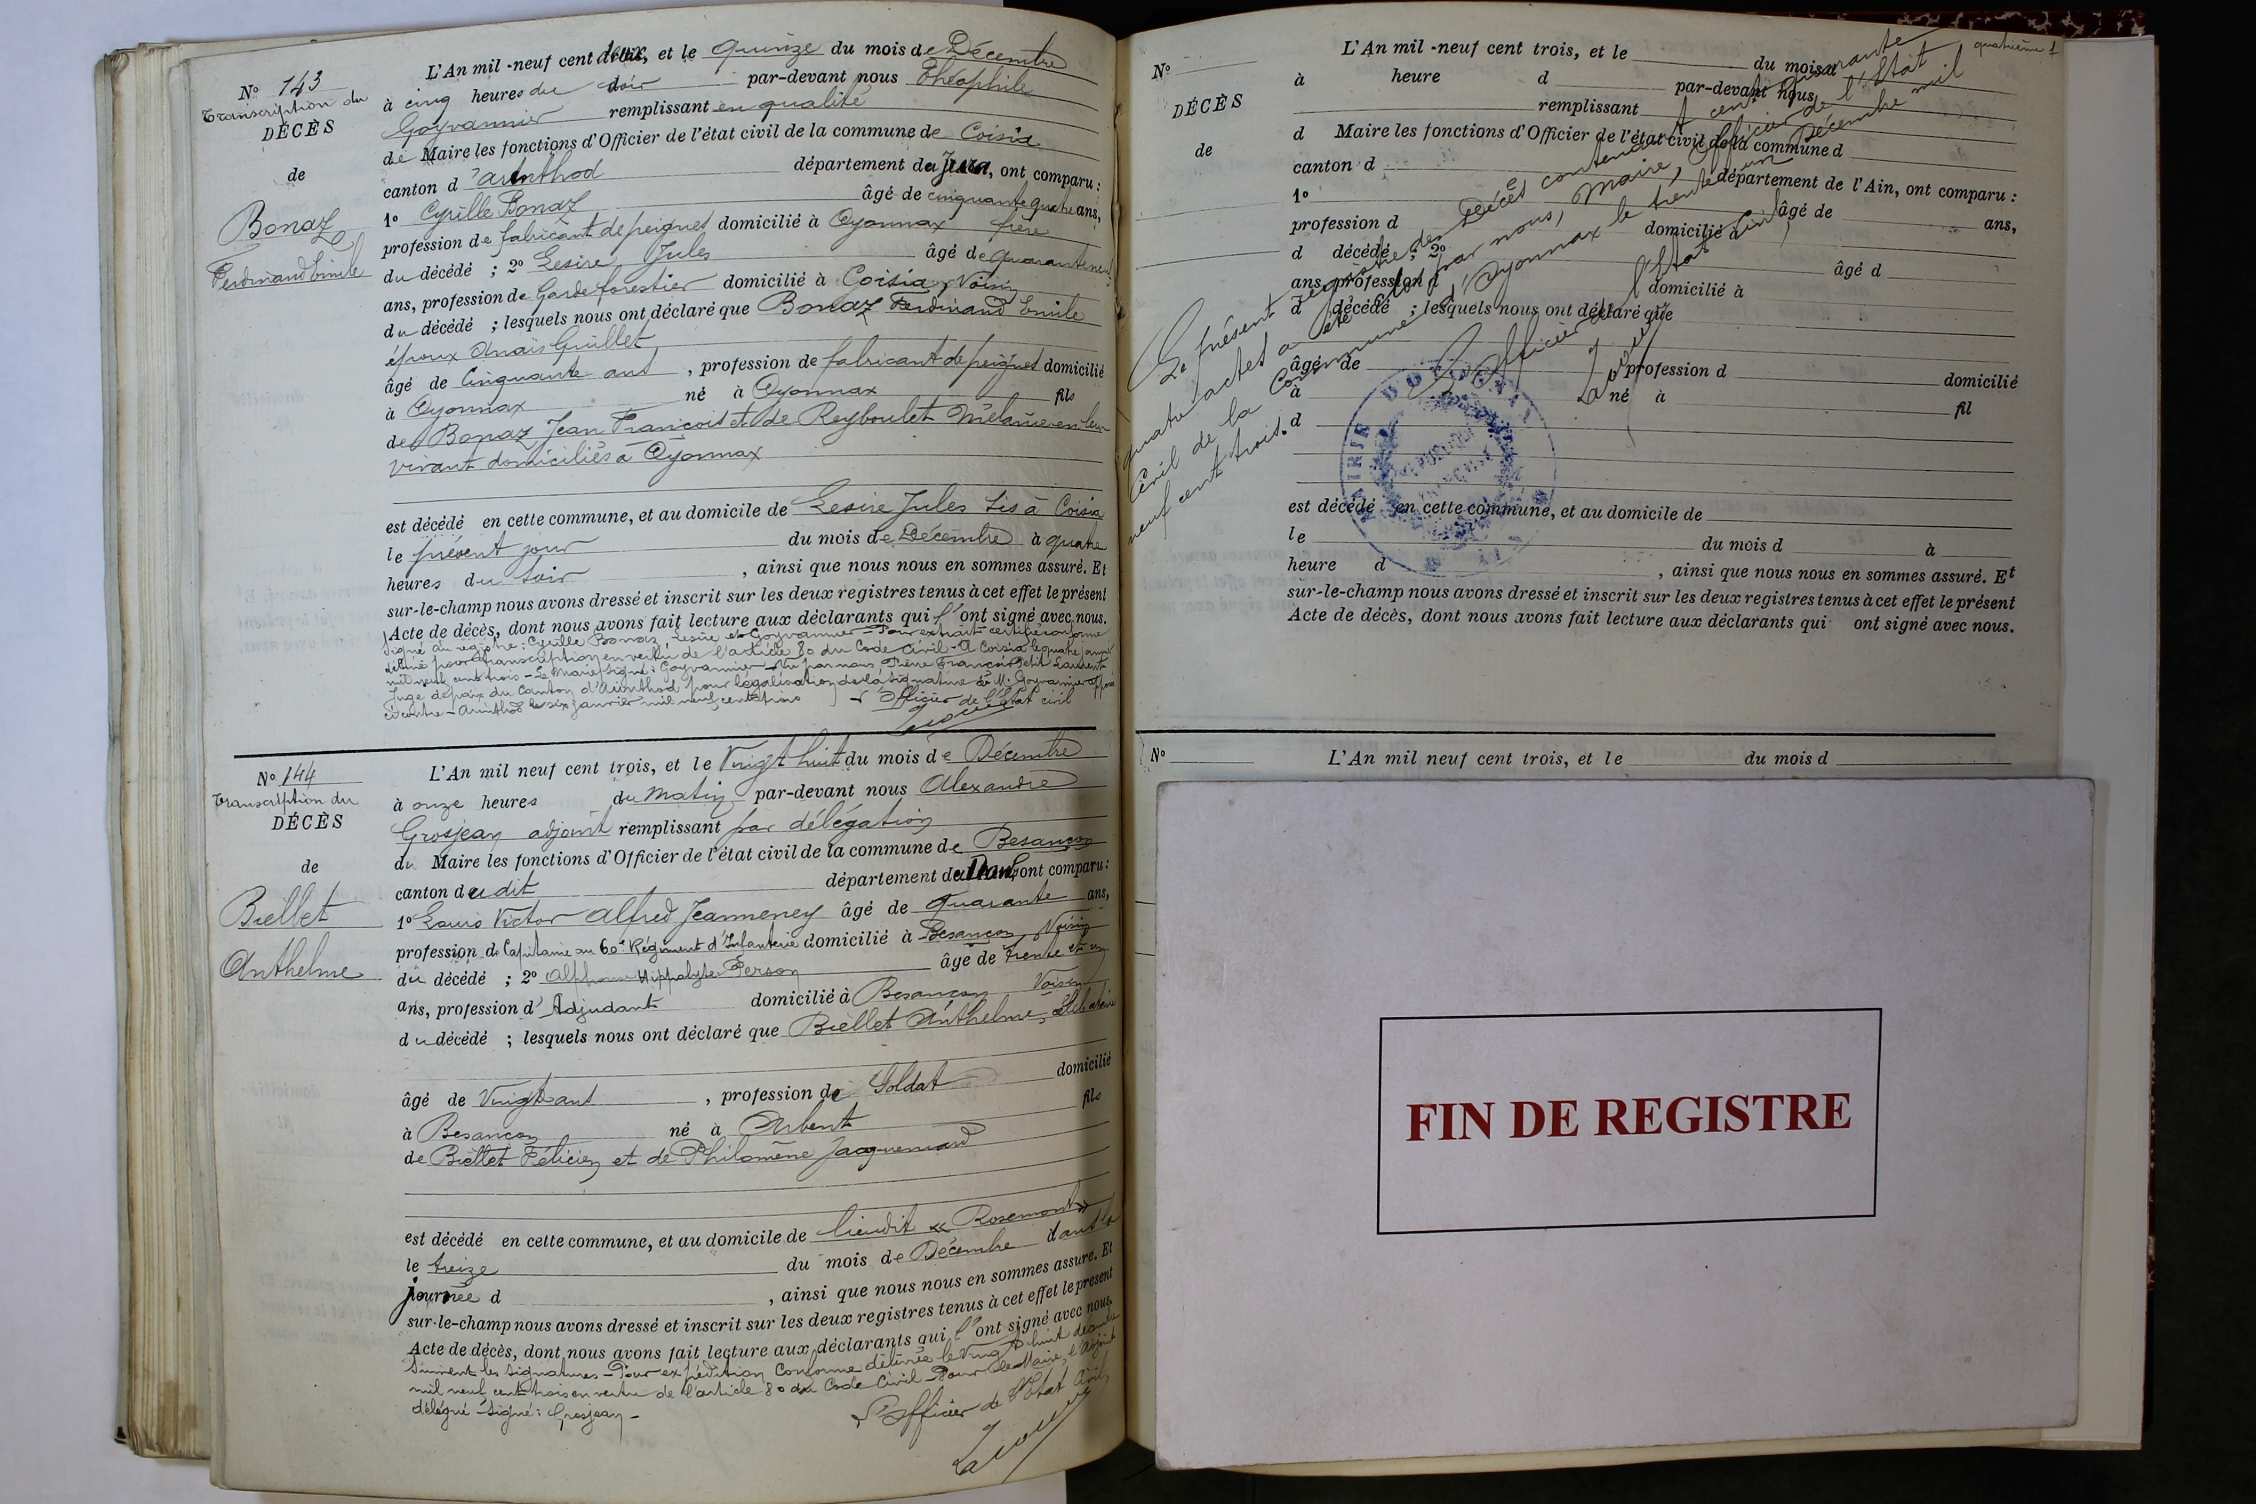 N° 143
Transcription du
DÉCÈS
de
Bonaz
Ferdinand Emile
L'An mil-neuf cent deux, et le quinze du mois de Décembre
à cinq heures du soir par-devant nous Théophile
Goyvannier remplissant en qualité
de Maire les fonctions d'Officier de l'état civil de la commune de Coisia
canton d'Arinthod département du Jura, ont comparu :
1° Cyrille Bonaz âgé de cinquante quatre ans,
profession de fabricant de peignes domicilié à Oyonnax frère
du décédé ; 2° Lesire Jules âgé de quarante neuf
ans, profession de Garde forestier domicilié à Coisia, Voisin
du décédé ; lesquels nous ont déclaré que Bonaz Ferdinand Emile
époux Anaïs Guillet
âgé de Cinquante ans, profession de fabricant de peignes domicilié
à Oyonnax né à Oyonnax fils
de Bonaz Jean François et de Reyboulet Mélanie en leur
vivant domiciliés à Oyonnax
est décédé en cette commune, et au domicile de Lesire Jules sis à Coisia
le présent jour du mois de Décembre à quatre
heures du soir, ainsi que nous nous en sommes assuré. Et
sur-le-champ nous avons dressé et inscrit sur les deux registres tenus à cet effet le présent
Acte de décès, dont nous avons fait lecture aux déclarants qui l'ont signé avec nous.
Signé au registre : Cyrille Bonaz, Lesire et Goyvannier - Pour extrait certifié conforme
délivré pour transcription en vertu de l'article 80 du Code Civil - A Coisia le quatre janvier
mil neuf cent trois - Le Maire signé : Goyvannier - Vu par nous, Pierre François Petit Laurent
Juge de paix du Canton d'Arinthod pour légalisation de la signature de M. Goyvannier apposé
ci contre - Arinthod le six janvier mil neuf cent trois
L'Officier de l'Etat civil
N° 144
Transcription du
DÉCÈS
de
Biellet
Anthelme
L'An mil neuf cent trois, et le Vingt huit du mois de Décembre
à onze heures du Matin par-devant nous Alexandre
Grosjean adjoint remplissant par délégation
du Maire les fonctions d'Officier de l'état civil de la commune de Besançon
canton dudit département du Doubs, ont comparu :
1° Louis Victor Alfred Jeanneney âgé de quarante ans,
profession de Capitaine au 60e Régiment d'Infanterie domicilié à Besançon, Voisin
du décédé ; 2° Alphonse Hippolyte Person âgé de trente et un
ans, profession d'Adjudant domicilié à Besançon Voisin
du décédé ; lesquels nous ont déclaré que Biellet Anthelme, célibataire
âgé de Vingt ans, profession de Soldat domicilié
à Besançon né à Arbent fils
de Biellet Félicien et de Philomène Jacquemard
est décédé en cette commune, et au domicile de lieudit « Rosemont »
le treize du mois de Décembre dans la
journée d, ainsi que nous nous en sommes assuré. Et
sur-le-champ nous avons dressé et inscrit sur les deux registres tenus à cet effet le présent
Acte de décès, dont nous avons fait lecture aux déclarants qui l'ont signé avec nous.
Suivent les signatures - Pour expédition Conforme délivrée le Vingt huit décembre
mil neuf cent trois en vertu de l'article 80 du Code Civil - Pour le Maire, l'Adjoint
délégué - Signé : Grosjean -
L'Officier de l'Etat Civil,
quatrième
N°
DÉCÈS
de
L'An mil-neuf cent trois, et le du mois d
à heure d par-devant nous
remplissant
d Maire les fonctions d'Officier de l'état civil de la commune d
canton d département de l'Ain, ont comparu :
1° âgé de ans,
profession d domicilié à
d décédé ; 2° âgé d
ans, profession d domicilié à
d décédé ; lesquels nous ont déclaré que
âgé de profession d domicilié
à né à fil
d
est décédé en cette commune, et au domicile de
le du mois d à
heure d, ainsi que nous nous en sommes assuré. Et
sur-le-champ nous avons dressé et inscrit sur les deux registres tenus à cet effet le présent
Acte de décès, dont nous avons fait lecture aux déclarants qui ont signé avec nous.
Le présent registre des Décès contenant cent quarante
quatre actes a été clos par nous, Maire, Officier de l'Etat
Civil de la Commune d'Oyonnax le trente un Décembre mil
neuf cent trois.
L'Officier de l'Etat Civil,
MAIRIE D'OYONNAX
N° L'An mil neuf cent trois, et le du mois d
FIN DE REGISTRE